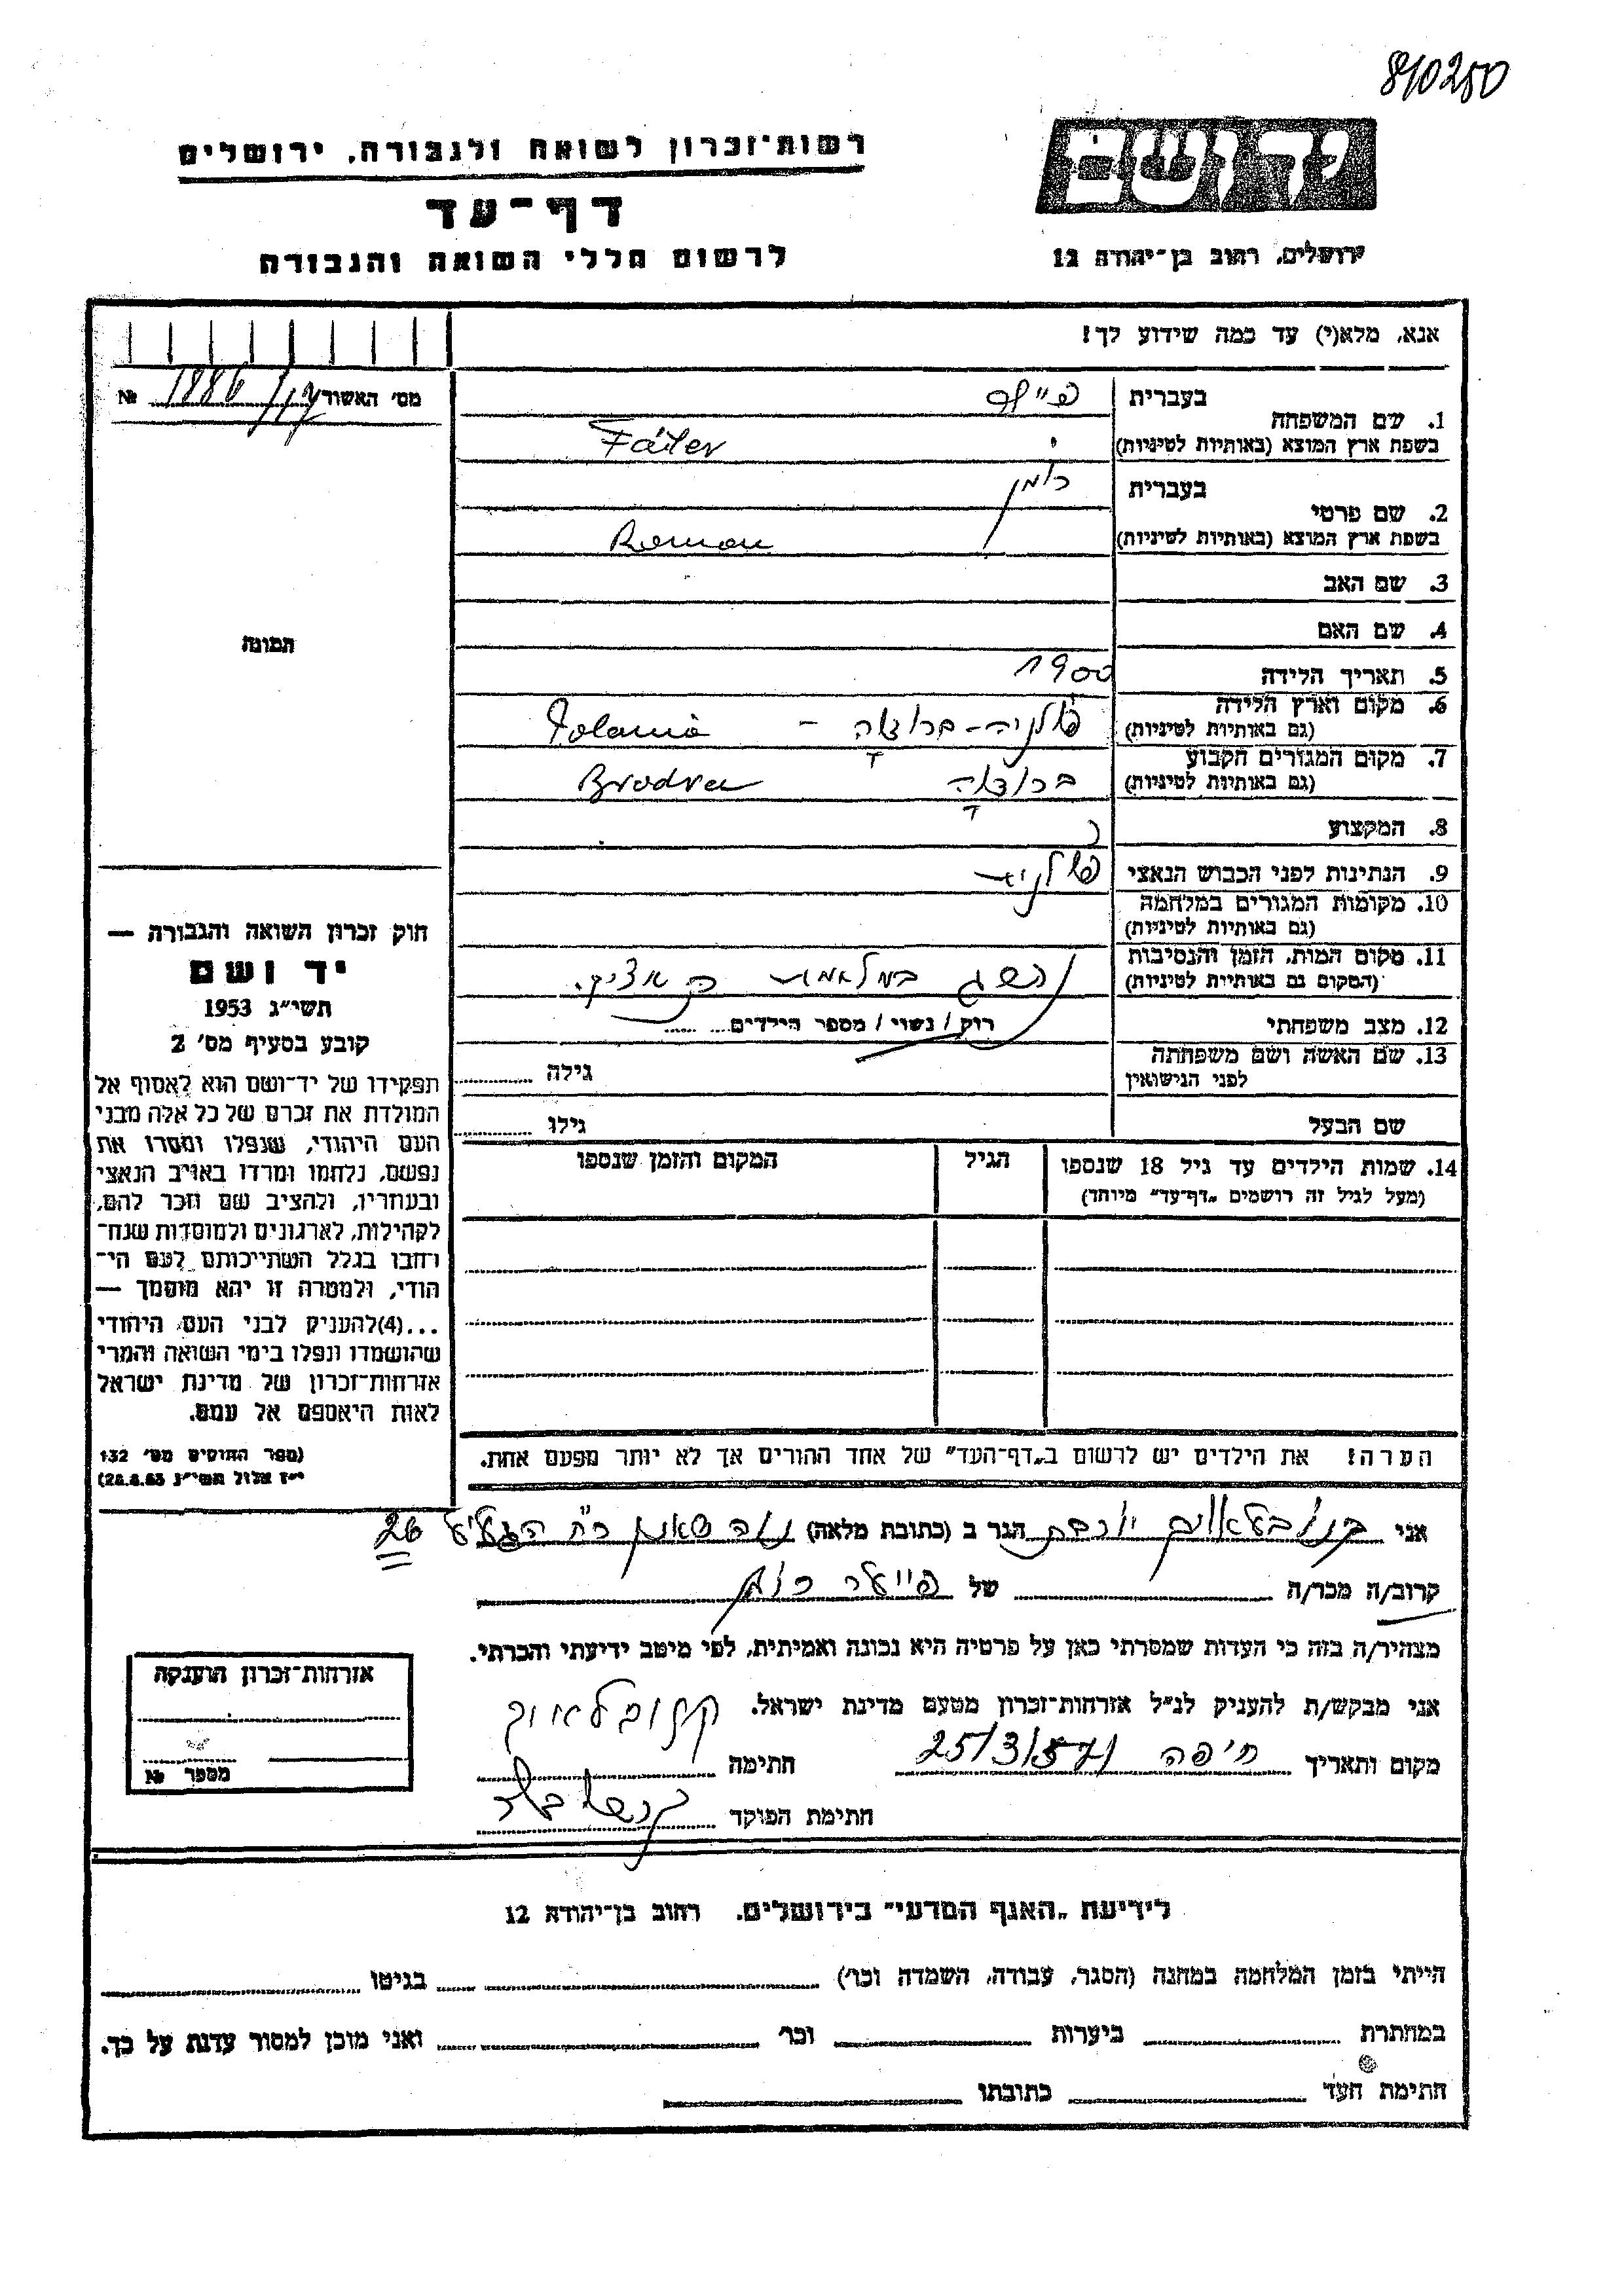 810250
יד ושם
רשות־זכרון לשואה ולגבורה, ירושלים
דף־עד
לרשום חללי השואה והגבורה
ירושלים, רחוב בן־יהודה 12
אנא, מלא(י) עד כמה שידוע לך!
מס' האשור № 1886
1. שם המשפחה
בעברית
בשפת ארץ המוצא (באותיות לטיניות) Fáiler
2. שם פרטי
בעברית רומן
בשפת ארץ המוצא (באותיות לטיניות) Roman
3. שם האב
4. שם האם
5. תאריך הלידה 1900
6. מקום וארץ הלידה
(גם באותיות לטיניות) פולניה - ברודזה - Polania
7. מקום המגורים הקבוע
(גם באותיות לטיניות) ברודזה Brodza
8. המקצוע
9. הנתינות לפני הכבוש הנאצי פולנית
10. מקומות המגורים במלחמה
(גם באותיות לטיניות)
11. מקום המות, הזמן והנסיבות
(המקום גם באותיות לטיניות)
12. מצב משפחתי רוק / נשוי / מספר הילדים
13. שם האשה ושם משפחתה
לפני הנישואין גילה
שם הבעל גילו
תמונה
חוק זכרון השואה והגבורה —
יד ושם
תשי״ג 1953
קובע בסעיף מס' 2
תפקידו של יד־ושם הוא לאסוף אל
המולדת את זכרם של כל אלה מבני
העם היהודי, שנפלו ומסרו את
נפשם, נלחמו ומרדו באויב הנאצי
ובעוזריו, ולהציב שם וזכר להם,
לקהילות, לארגונים ולמוסדות שנח־
רחבו בגלל השתייכותם לעם הי־
הודי, ולמטרה זו יהא מוסמך —
...(4) להעניק לבני העם היהודי
שהושמדו ונפלו בימי השואה והמרי
אזרחות־זכרון של מדינת ישראל
לאות היאספם אל עמם.
(ספר החוקים מס' 132
י״ז אלול תשי״ג 28.8.53)
14. שמות הילדים עד גיל 18 שנספו הגיל המקום והזמן שנספו
(מעל לגיל זה רושמים „דף־עד״ מיוחד)
הערה! את הילדים יש לרשום ב„דף־העד״ של אחד ההורים אך לא יותר מפעם אחת.
אני הגר ב (כתובת מלאה) נוה שאנן רח' הגליל 26
קרוב/ה מכר/ה של פיילר רומן
מצהיר/ה בזה כי העדות שמסרתי כאן על פרטיה היא נכונה ואמיתית, לפי מיטב ידיעתי והכרתי.
אני מבקש/ת להעניק לנ״ל אזרחות־זכרון מטעם מדינת ישראל.
מקום ותאריך חיפה 25/3/57 חתימה
חתימת הפוקד
אזרחות־זכרון הוענקה
מספר №
לידיעת „האגף המדעי״ בירושלים. רחוב בן־יהודה 12
הייתי בזמן המלחמה במחנה (הסגר, עבודה, השמדה וכו') בגיטו
במחתרת ביערות וכו' ואני מוכן למסור עדות על כך.
חתימת העד כתובתו